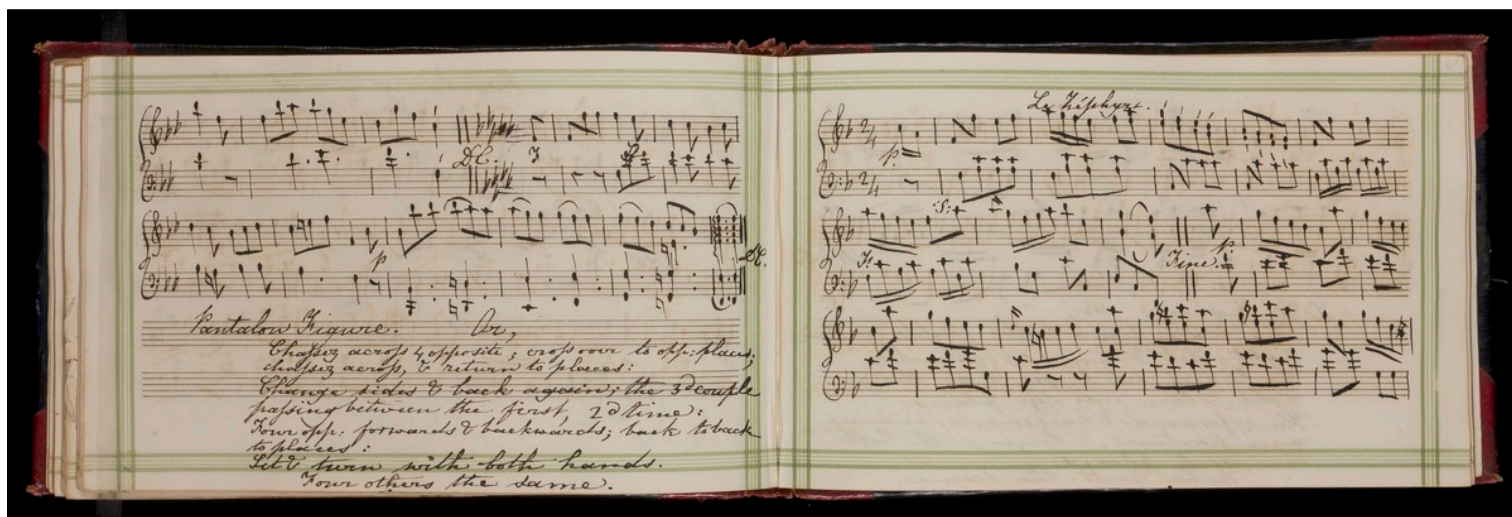 D.C.
p
D.C.
Pantalon Figure. Or,
Chassez across 4 opposite; cross over to opp: places;
chassez across, & return to places:
Change sides & back again; the 3d couple
passing between the first, 2d time:
Four opp: forwards & backwards; back to back
to places:
Set & turn with both hands.
Four others the same.
Le Zéphyr.
2/4
p.
2/4
:S:
Fine.
p.